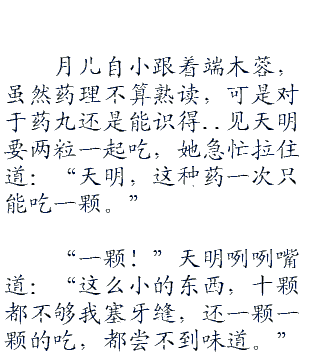 月儿自小跟着端木蓉，
虽然药理不算熟读，可是对
于药丸还是能识得..见天明
要两粒一起吃，她急忙拉住
道：“天明，这种药一次只
能吃一颗。”
“一颗！”天明咧咧嘴
道：“这么小的东西，十颗
都不够我塞牙缝，还一颗一
颗的吃，都尝不到味道。”